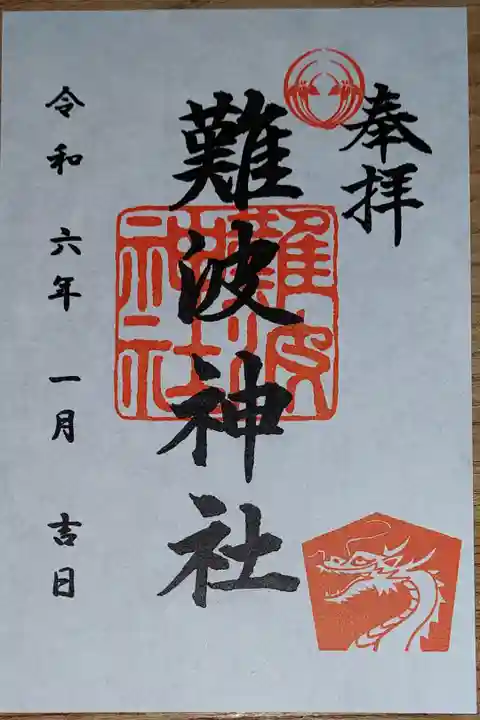 奉拝
難波神社
難波
神社
令和 六年 一月 吉日